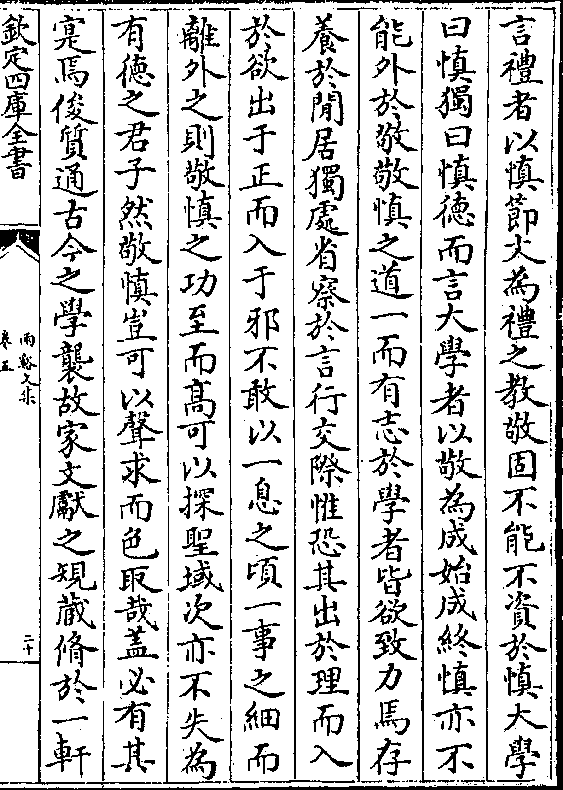 言禮者以慎節文為禮之教敬固不能不資於慎大學
曰慎獨曰慎德而言大學者以敬為成始成終慎亦不
能外於敬敬慎之道一而有志於學者皆欲致力焉存
養於閒居獨處省察於言行交際惟恐其出於理而入
於欲出于正而入于邪不敢以一息之頃一事之細而
離外之則敬慎之功至而髙可以探聖域次亦不失為
有德之君子然敬慎豈可以聲求而色取哉盖必有其
寔焉俊質通古今之學襲故家文獻之規蔵脩於一軒
欽定四庫全書
兩谿文集
卷五
二十